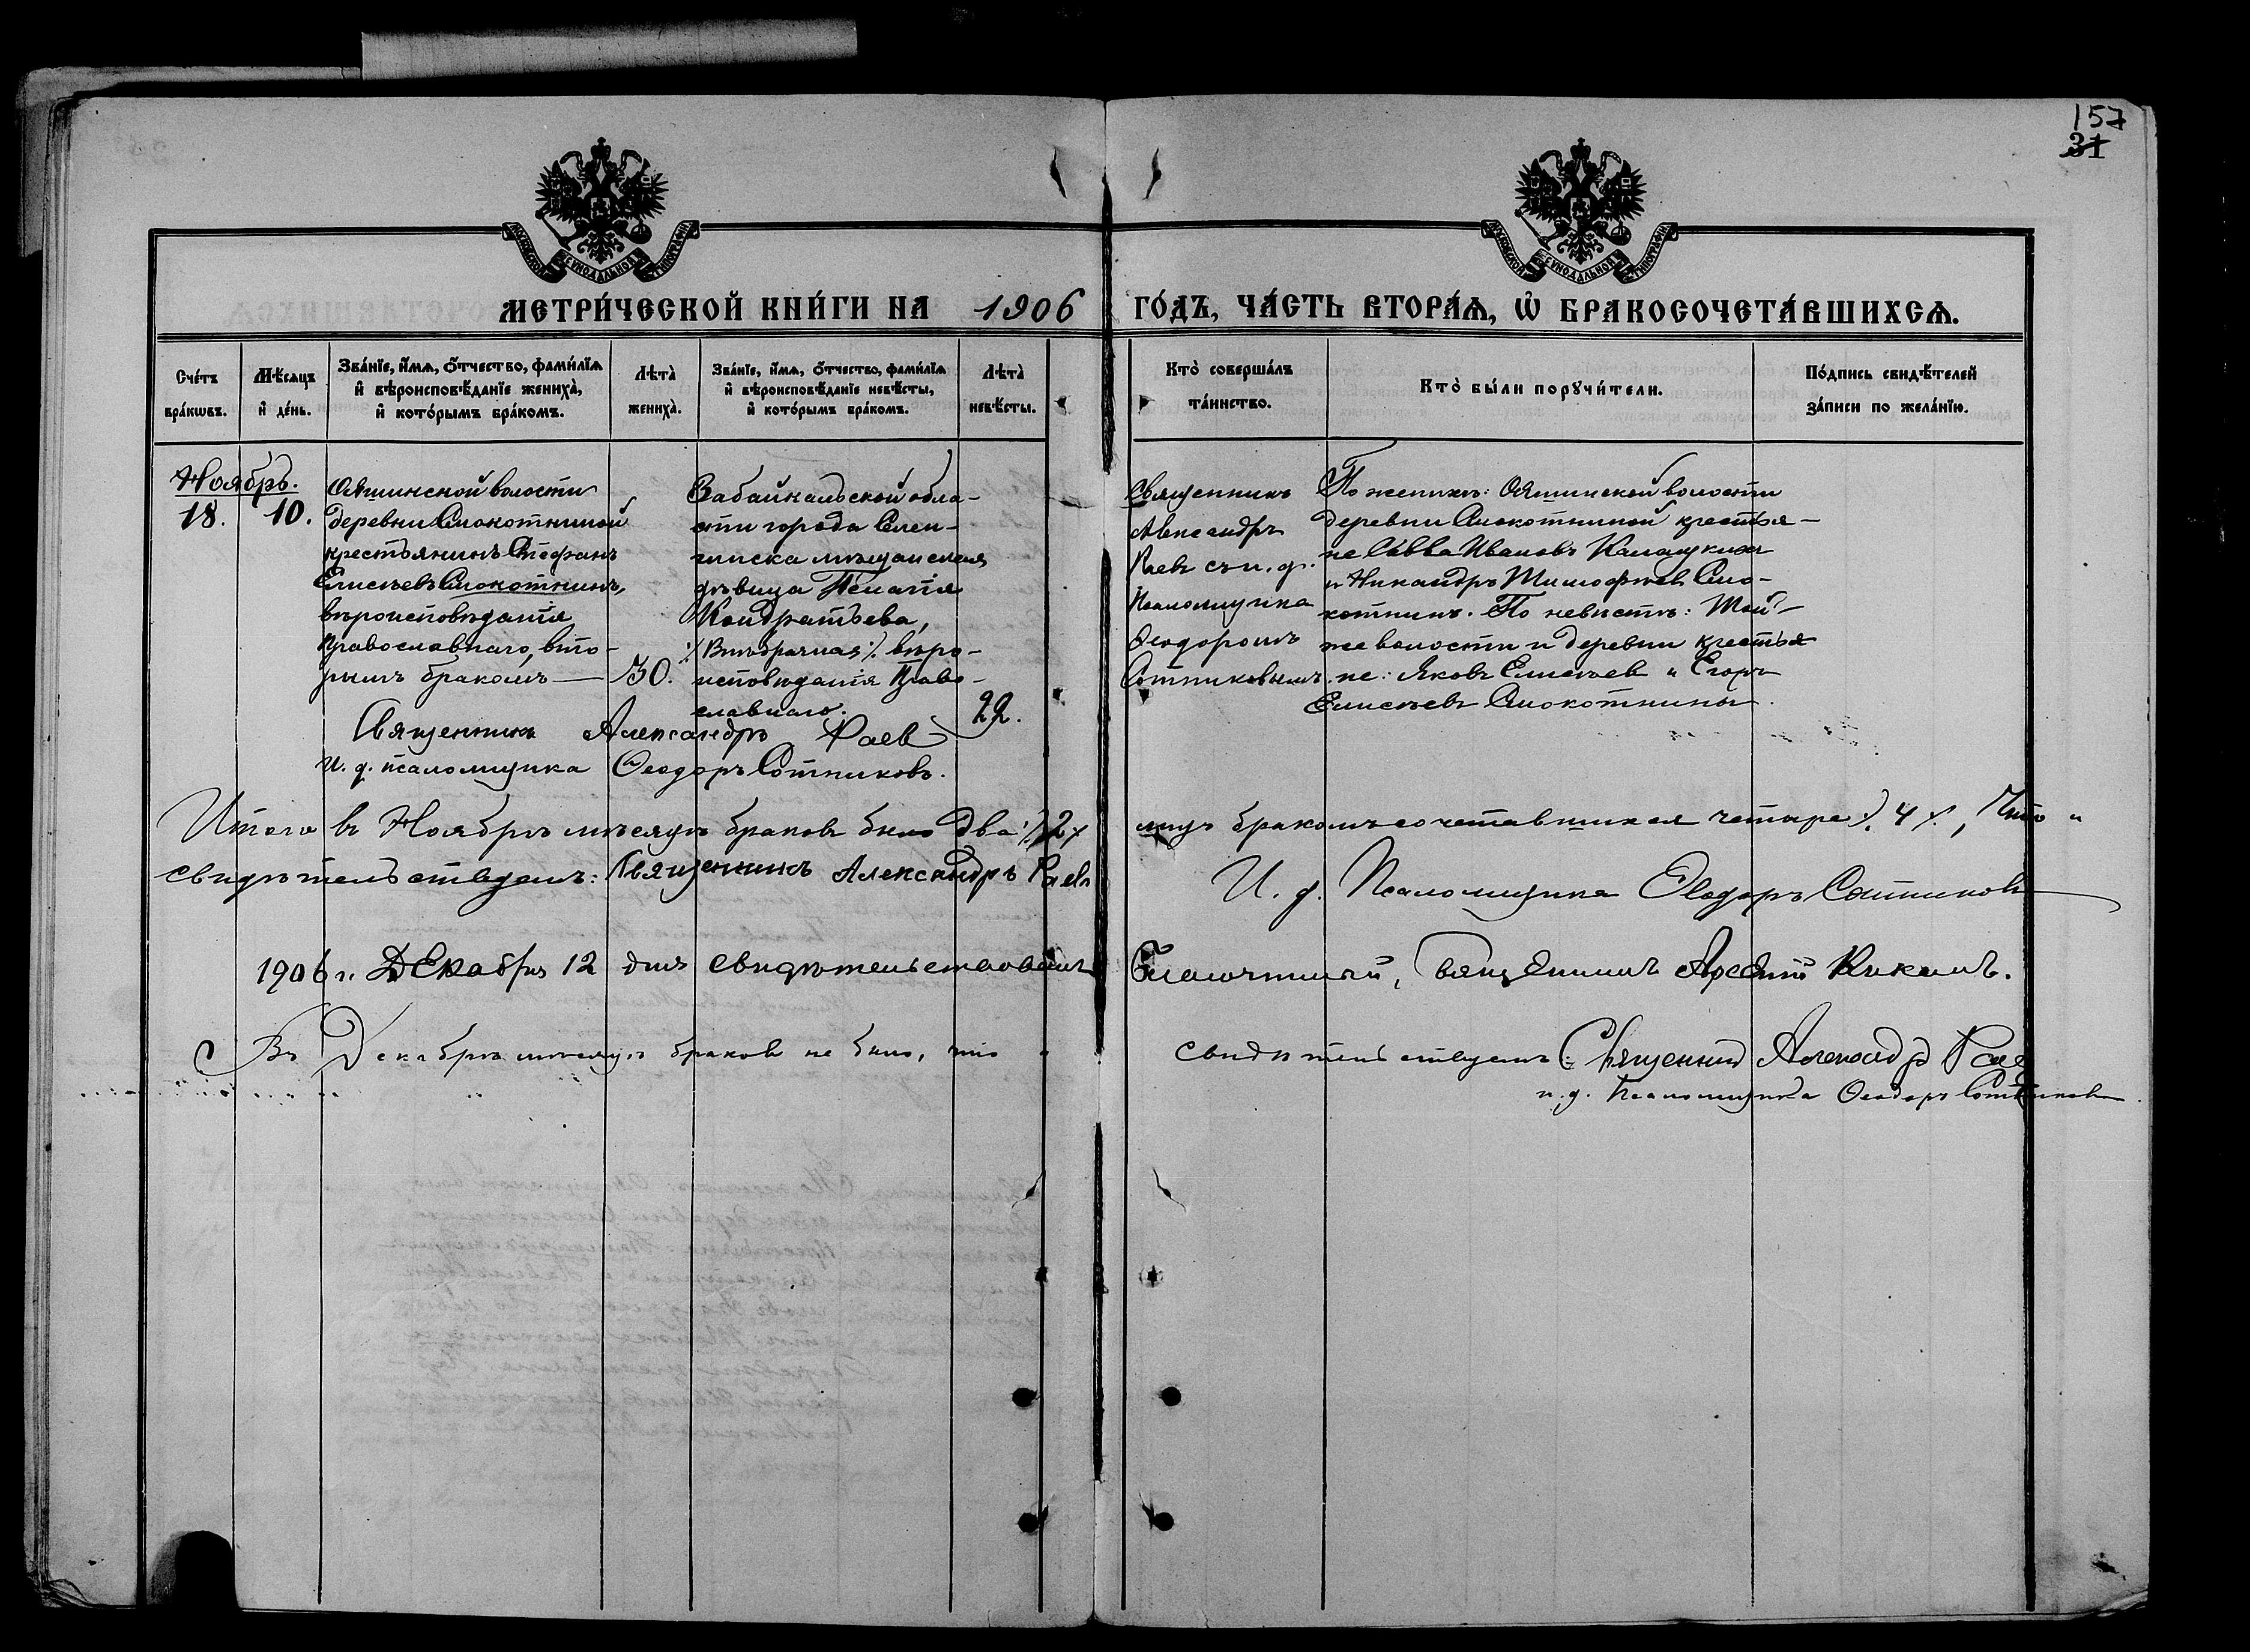 157
31
МОСКОВСКОЙ СѴНОДАЛЬНОЙ ТИПОГРАФІИ
МОСКОВСКОЙ СѴНОДАЛЬНОЙ ТИПОГРАФІИ
МЕТРИ́ЧЕСКОЙ КНИ́ГИ НА 1906 ГО́ДЪ, ЧА́СТЬ ВТОРА́Ѧ, Ѽ БРАКОСОЧЕТА́ВШИХСѦ.
Сче́тъ
бра́кѡвъ.
Мѣ́сяцъ
и҆ де́нь.
Зва́нїе, и҆́мѧ, ѻ҆́тчество, фами́лїѧ
и҆ вѣроисповѣ́данїе жениха̀,
и҆ кото́рымъ бра́комъ.
Лѣта̀
жениха̀.
Зва́нїе, и҆́мѧ, ѻ҆́тчество, фами́лїѧ
и҆ вѣроисповѣ́данїе невѣ́сты,
и҆ кото́рымъ бра́комъ.
Лѣта̀
невѣ́сты.
Кто̀ соверша́лъ
та́инство.
Кто̀ бы́ли порꙋчи́тели.
По́дпись свидѣ́телей
за́писи по жела́нїю.
Ноябрь.
18. 10.
Ояшинской волости
деревни Смокотниной
крестьянинъ Стефанъ
Елисѣевъ Смокотнинъ,
вѣроисповѣданія
Православнаго, вто-
рымъ бракомъ
30.
Забайкальской обла-
сти города Селен-
гинска мѣщанская
дѣвица Пелагія
Кондратьева,
Внѣбрачная вѣро-
исповѣданія Право-
славнаго.
22.
Священникъ
Александръ
Раевъ съ и. д.
Псаломщика
Ѳеодоромъ
Сотниковымъ.
По женихѣ: Ояшинской волости
деревни Смокотниной крестья-
не Савва Ивановъ
и Никандръ Тимофеевъ Смо-
котнинъ. По невѣстѣ: Той-
же волости и деревни крестья
не: Яковъ Елисѣевъ и Егоръ
Елисѣевъ Смокотнины.
Священникъ Александръ Раевъ
И. д. псаломщика Ѳеодоръ Сотниковъ.
Итого въ Ноябрѣ мѣсяцѣ браковъ было два 2 лицъ бракомъ сочетавшихся четыре 4, Что и
свидѣтельствуемъ: Священникъ Александръ Раевъ И. д. Псаломщика Ѳеодоръ Сотниковъ
1906 г. Декабря 12 дня свидѣтельствовалъ Благочинный, Священникъ Арсеній Кикинъ.
Въ Декабрѣ мѣсяцѣ браковъ не было, что и свидѣтельствуемъ: Священникъ Александръ Раевъ
и. д. Псаломщика Ѳеодоръ Сотниковъ